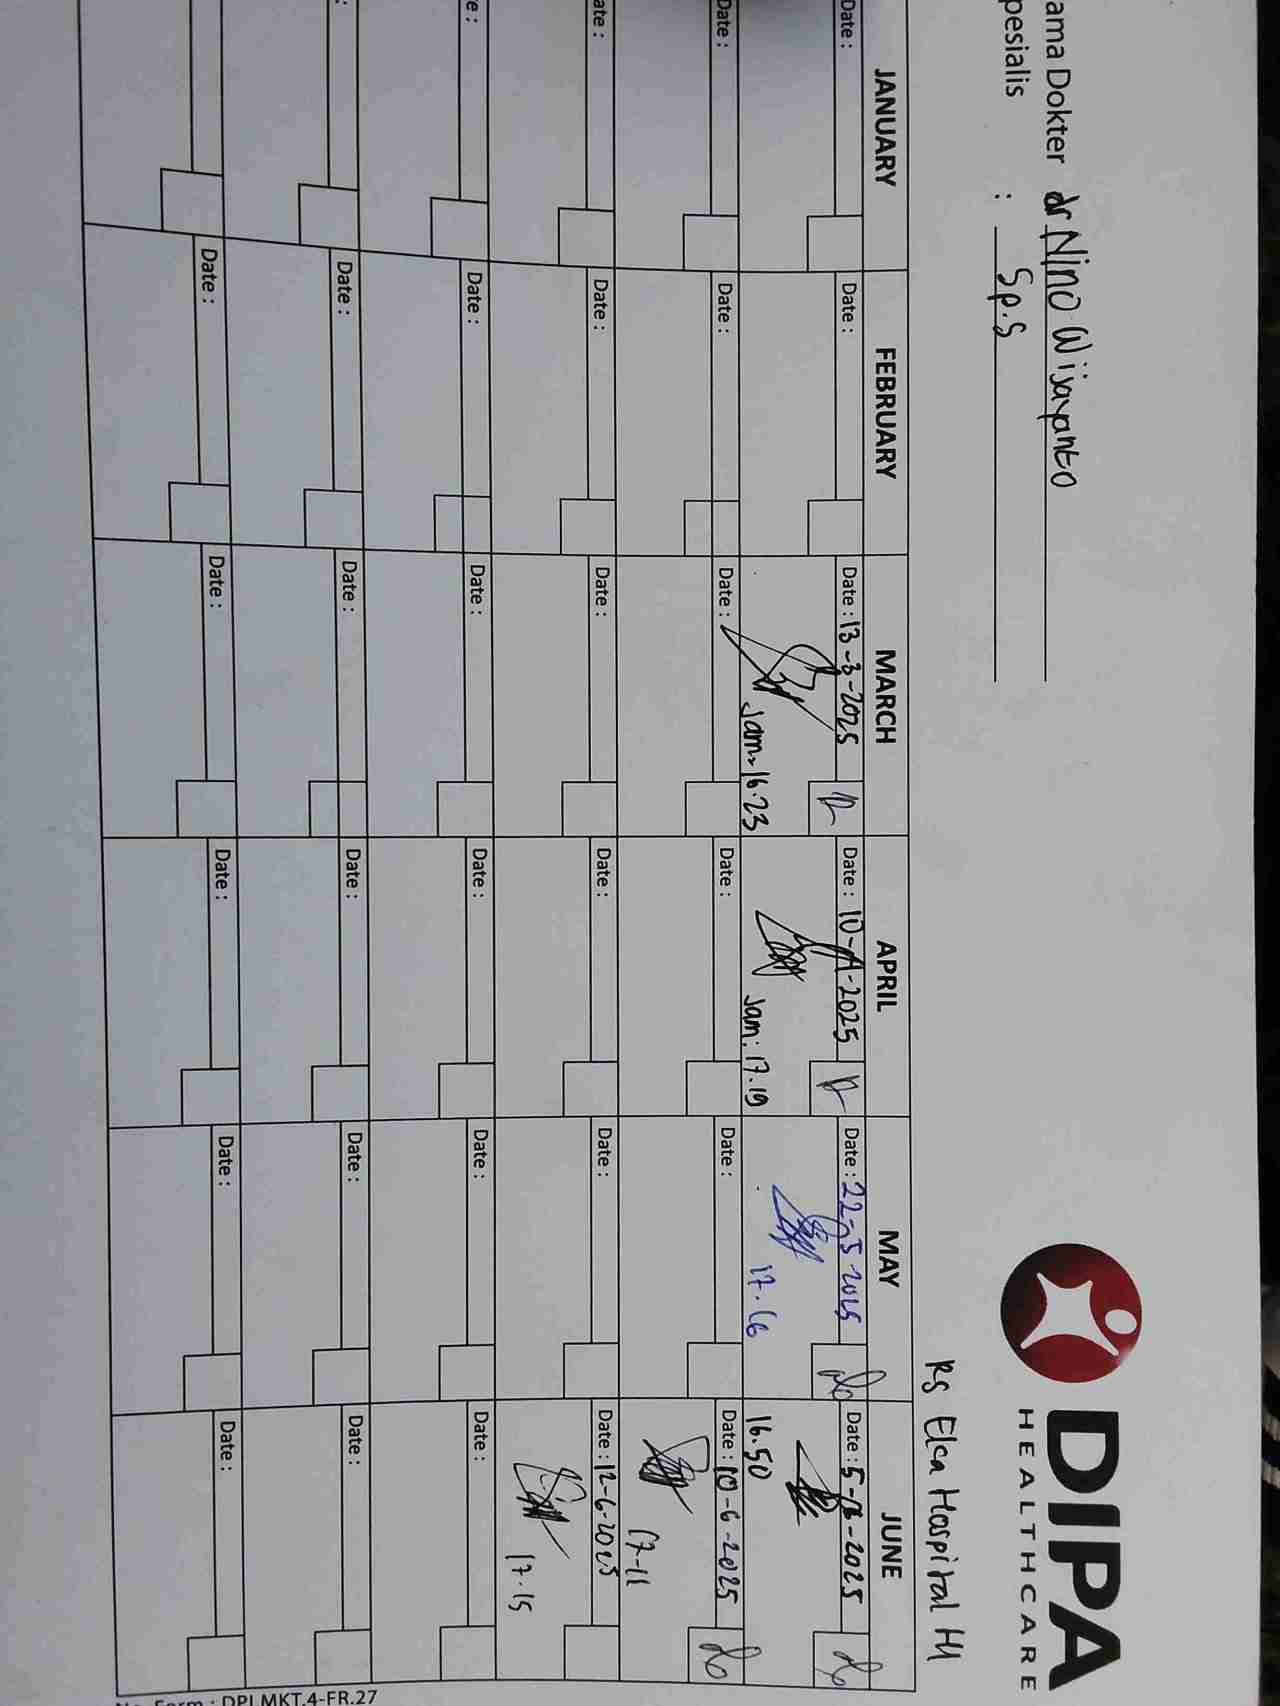 DIPA
HEALTHCARE
ama Dokter dr Nino Wijayanto
pesialis : Sp.S
RS Elca Hospital
JANUARY FEBRUARY MARCH APRIL MAY JUNE
Date : Date : Date : 13-3-2025 Date : 10-4-2025 Date : 22-5-2025 Date : 5-06-2025
Jam: 16.23 Jam: 17.19 17.16 16.50
Date : Date : Date : Date : Date : Date : 10-6-2025
17-11
ate : Date : Date : Date : Date : Date : 12-6-2025
17.15
e : Date : Date : Date : Date : Date :
: Date : Date : Date : Date : Date :
Date : Date : Date : Date : Date :
No. Form : DPI.MKT.4-FR.27